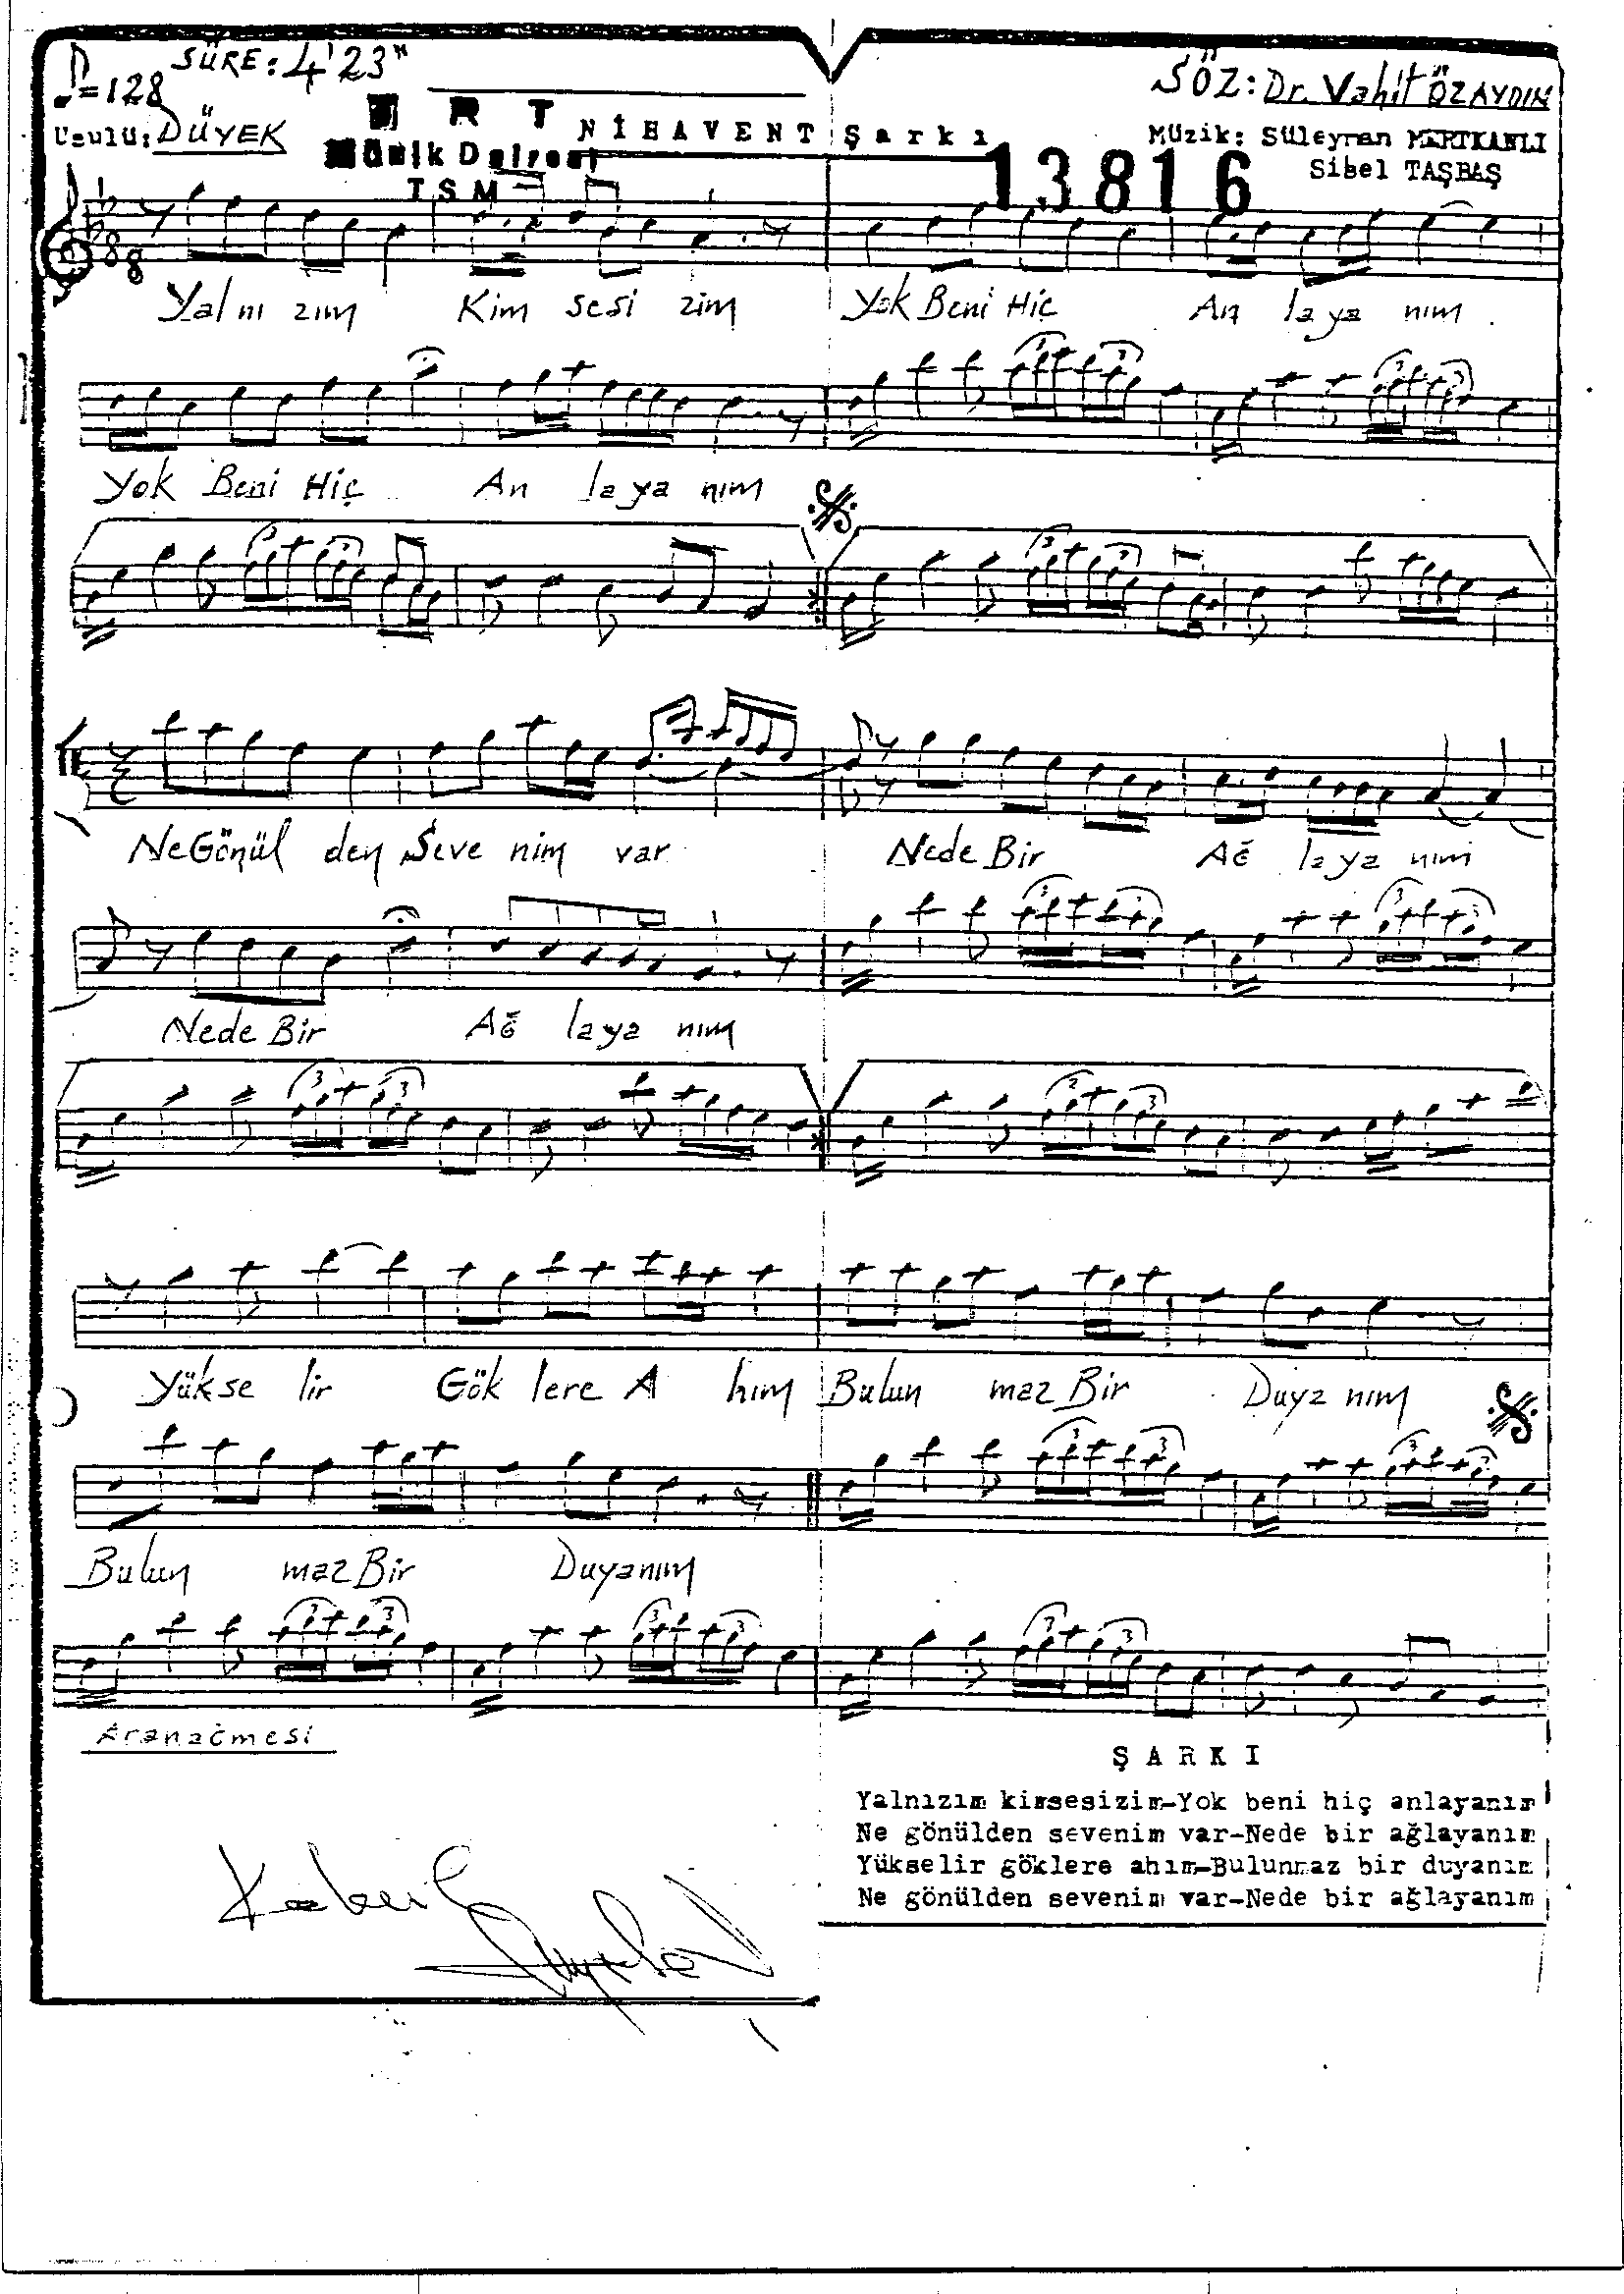 SÜRE: 4'23"
♪=128
Usulü: DÜYEK
T R T
Müzik Dairesi
T S M
NİHAVENT Şarkı
13816
SÖZ: Dr. Vahit ÖZAYDIN
Müzik: Süleyman MERTKANLI
Sibel TAŞBAŞ
Yal nı zım Kim sesi zim Yok Beni Hiç An la ya nım
Yok Beni Hiç An la ya nım
Ne Gönül den Seve nim var Nede Bir Ağ la ya nım
Nede Bir Ağ laya nım
Yük se lir Gök lere A hım Bulun maz Bir Duya nım
Bulun maz Bir Duyanım
Aranağmesi
ŞARKI
Yalnızım kimsesizim-Yok beni hiç anlayanım
Ne gönülden sevenim var-Nede bir ağlayanım
Yükselir göklere ahım-Bulunmaz bir duyanım
Ne gönülden sevenim var-Nede bir ağlayanım